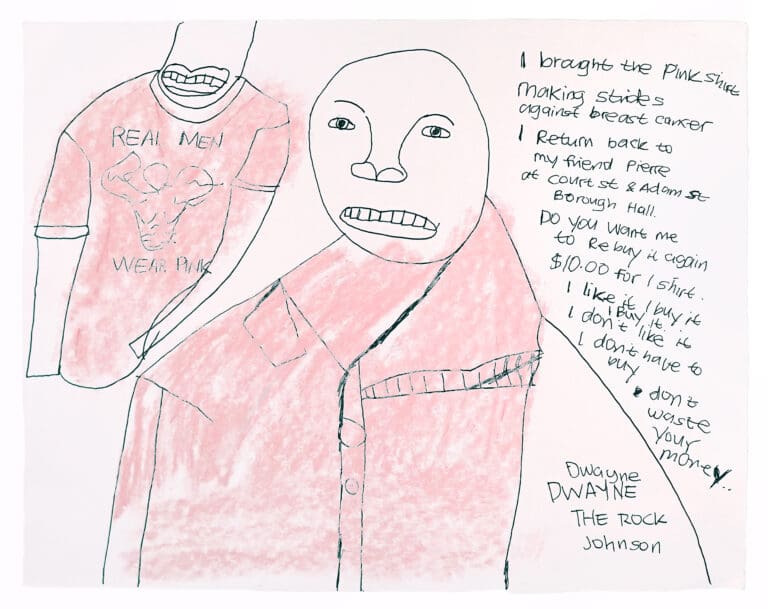 REAL MEN
WEAR PINK
I brought the Pink shirt
making strides
against breast cancer
I Return back to
my friend Pierre
at court st & Adam st
Borough Hall.
Do you want me
to Rebuy it again
$10.00 for 1 shirt.
I like it I buy it
I Buy it.
I don't like it
I don't have to
buy
I don't
waste
your
money..
Dwayne
DWAYNE
THE ROCK
Johnson